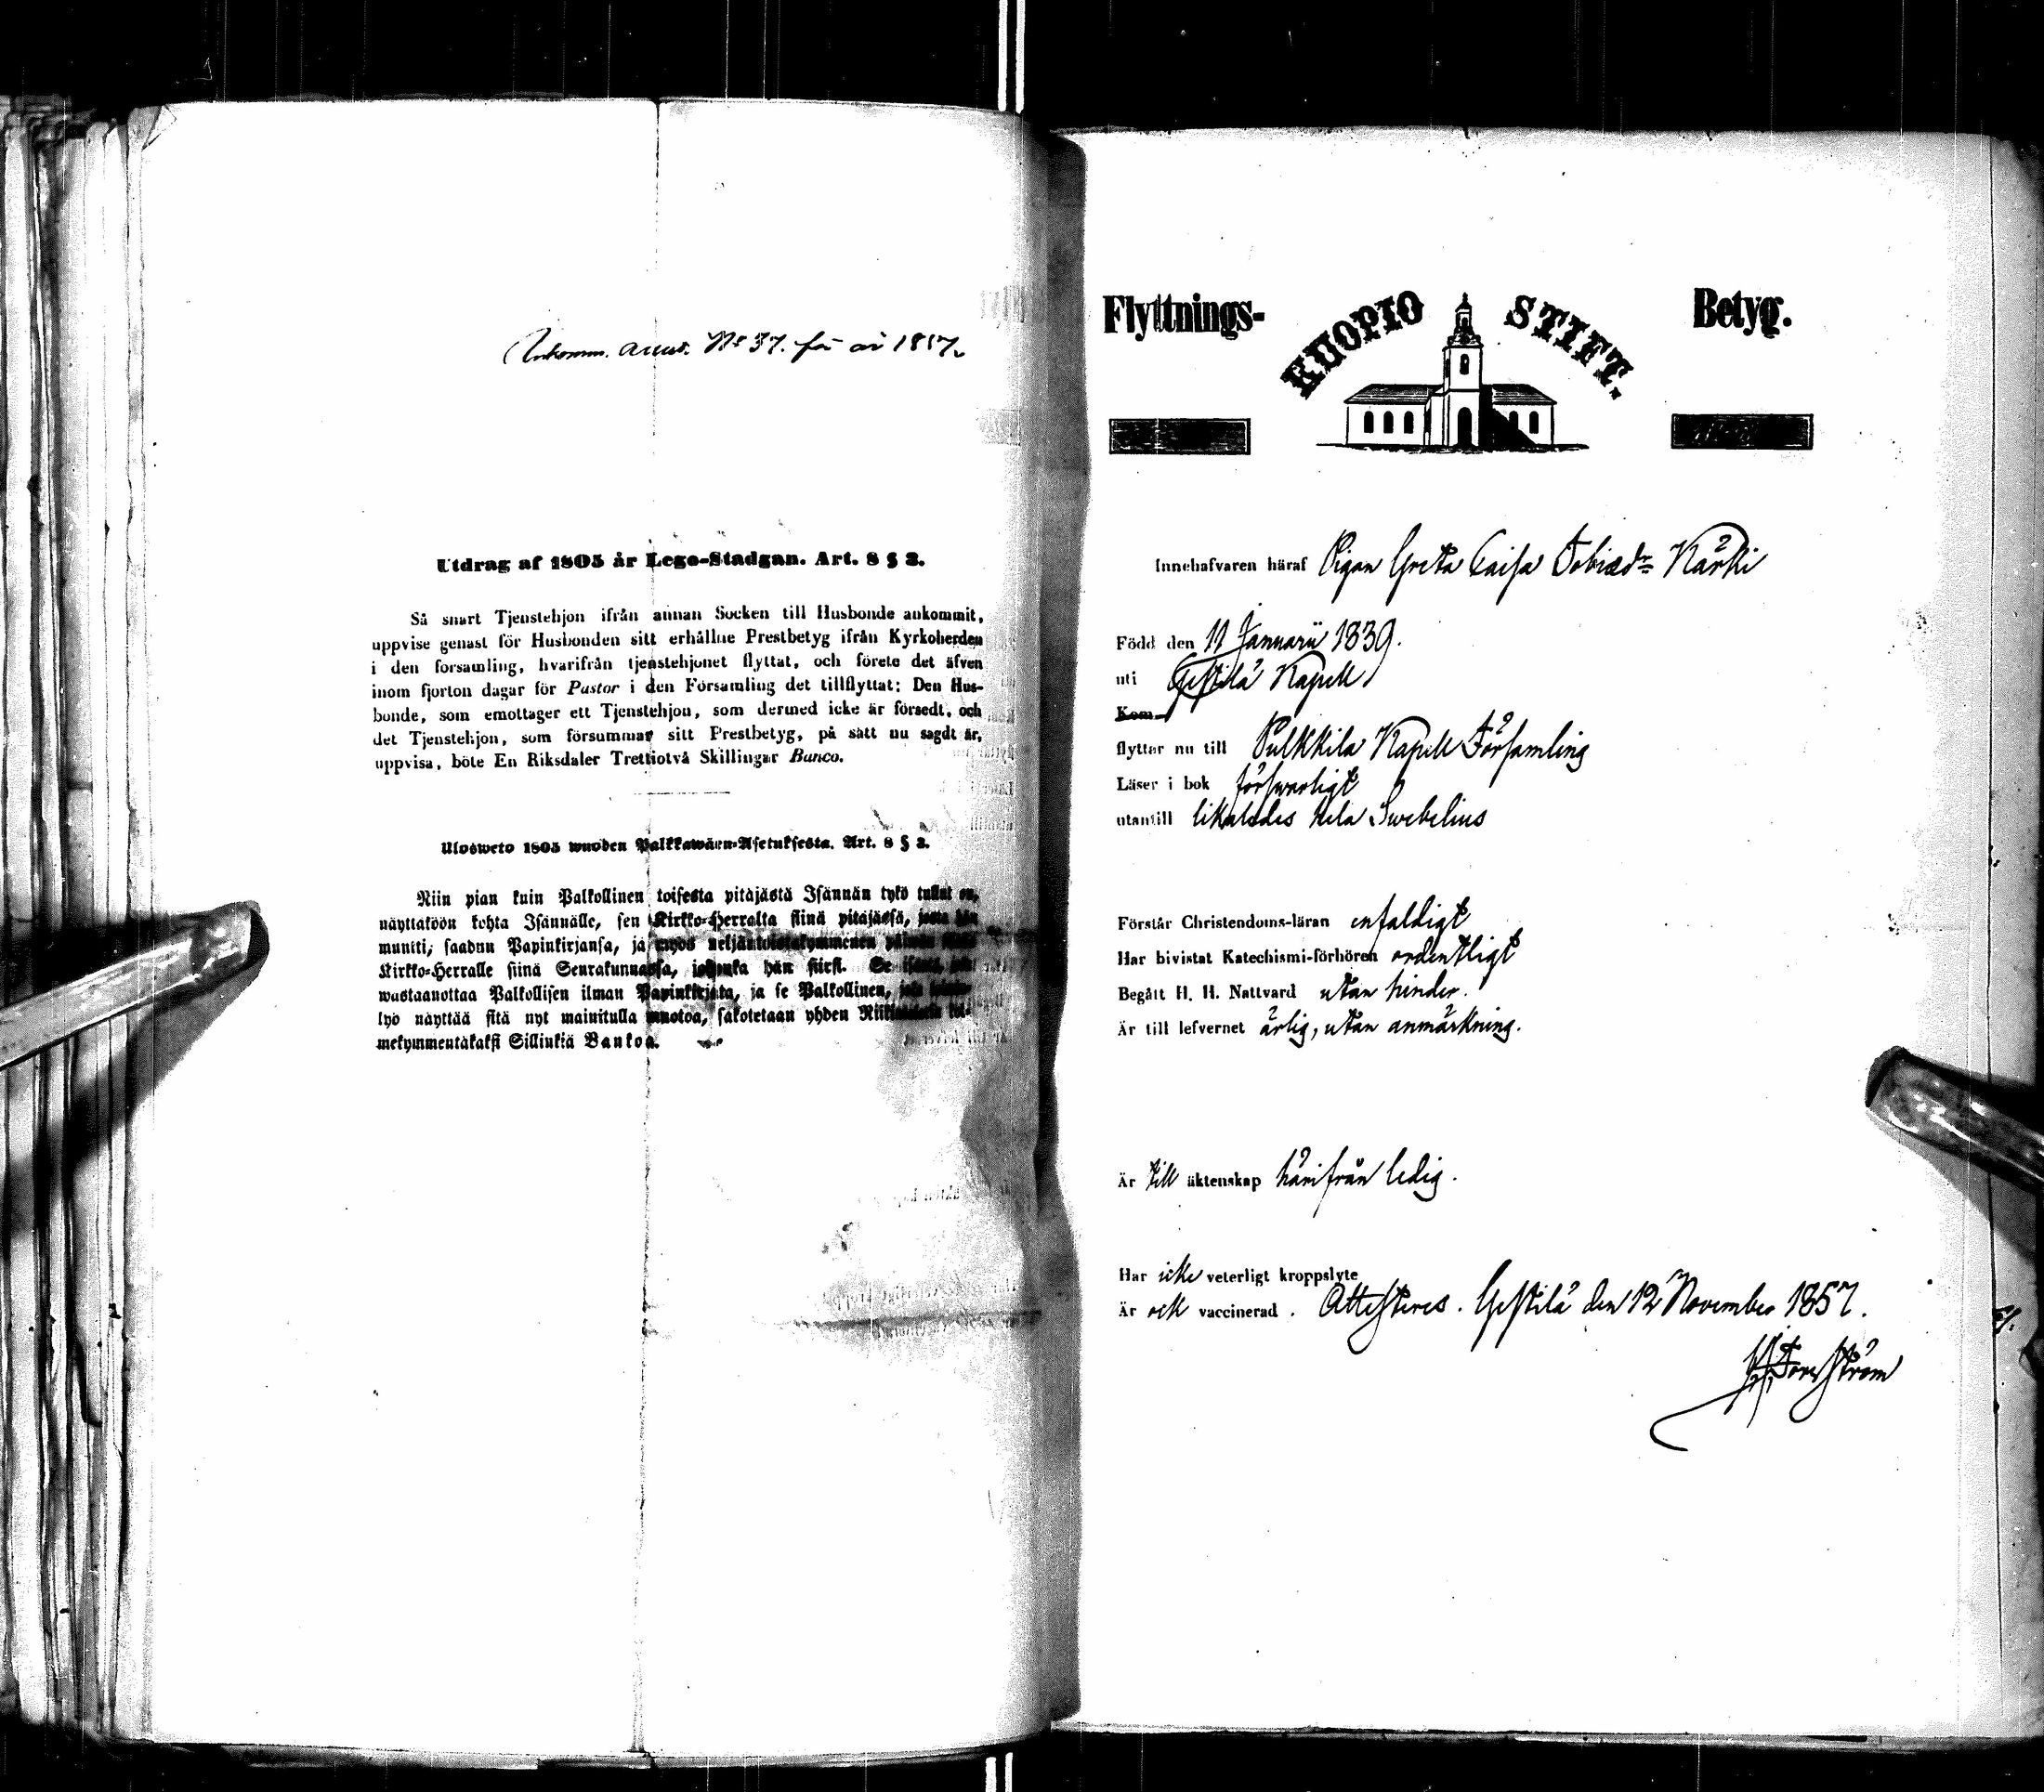 Inkomm. attest. No 37. för år 1857.
Utdrag af 1805 år Lego-Stadgan. Art. 8 § 2.
Så snart Tjenstehjon ifrån annan Socken till Husbonde ankommit,
uppvise genast för Husbonden sitt erhållne Prestbetyg ifrån Kyrkoherden
i den forsamling, hvarifrån tjenstehjonet flyttat, och förete det äfven
inom fjorton dagar för Pastor i den Församling det tillflyttat; Den Hus-
bonde, som emottager ett Tjenstehjon, som dermed icke är försedt, och
det Tjenstehjon, som försummar sitt Prestbetyg, på sätt nu sagdt är,
uppvisa, böte En Riksdaler Trettiotvå Skillingar Banco.
Ulosweto 1805 wuoden Palkkawäen-Asetuksesta. Art. 8 § 2.
Niin pian kuin Palkollinen toisesta pitäjästä Isännän tykö tullut on,
näyttäköön kohta Isännälle, sen Kirkko-Herralta siinä pitäjässä, josta hän
muutti, saadun Papinkirjansa, ja myös neljäntoistakymmenen päiwän
Kirkko-Herralle siinä Seurakunnassa, johonka hän siirsi. Se
wastaanottaa Palkollisen ilman Papinkirjata, ja se Palkollinen, joka
lyö näyttää sitä nyt mainitulla muotoa, sakotetaan yhden
mekymmentäkaksi Sillinkiä Bankoa.
Flyttnings- KUOPIO STIFT. Betyg.
Innehafvaren häraf Pigan Greta Caisa Tobiasdr Kärki
Född den 11 Januarii 1839.
uti Gestilä Kapell
Kom
flyttar nu till Pulkkila Kapell Församling
Läser i bok försvarligt
utantill likaledes hela Swebelius
Förstår Christendoms-läran enfaldigt
Har bivistat Katechismi-förhören ordentligt
Begått H. H. Nattvard utan hinder.
Är till lefvernet ärlig, utan anmärkning.
Är till äktenskap härifrån ledig.
Har icke veterligt kroppslyte
Är ock vaccinerad . Attesteras. Gestilä den 12 November 1857.